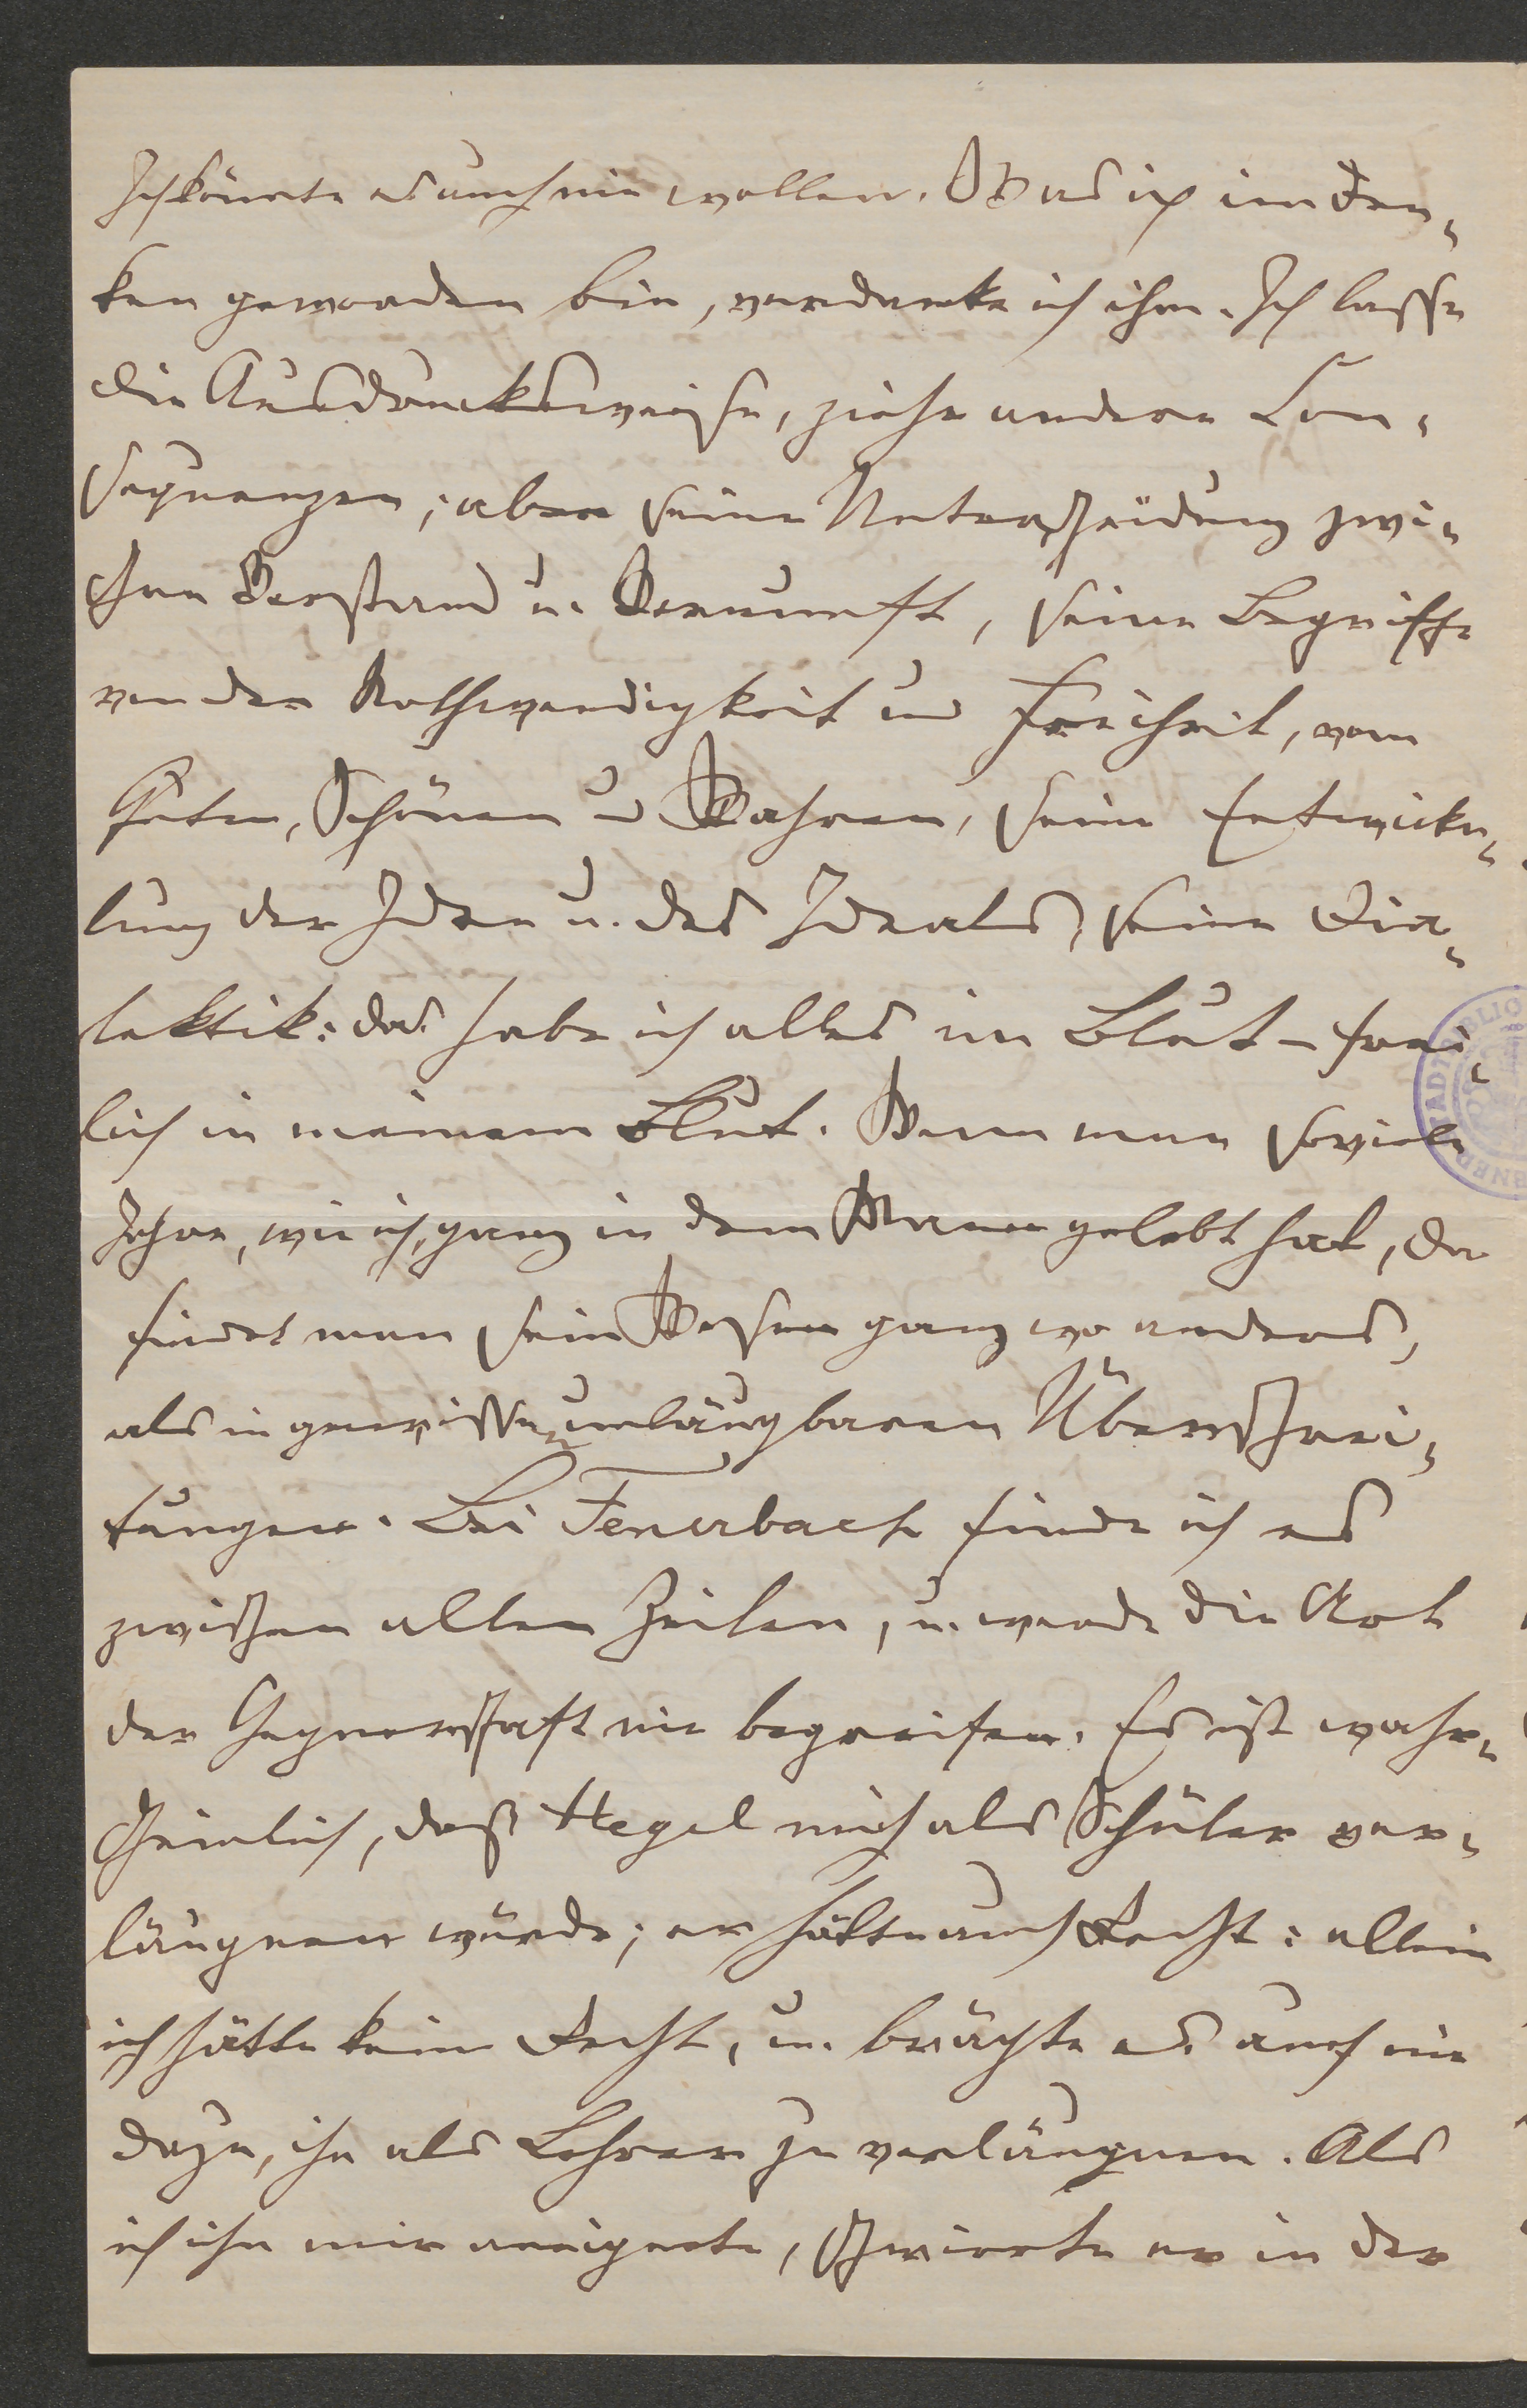 Ich könnte es auch nie wollen. Was ich im Den-
ken geworden bin, verdanke ich ihm. Ich lasse
die Ausdrucksweise, ziehe andere Con-
sequenzen; aber seine Unterscheidung zwi-
schen Verstand u. Vernunft, seine Begriffe
von der Nothwendigkeit und Freiheit, vom
Guten, Schönen und Wahren, seine Entwicke-
lung der Idee u. des Ideals, seine Dia-
lektik: das habe ich alles im Blut – frei-
lich in meinem Blut. Wenn man soviele
Jahre, wie ich, ganz in dem Manne gelebt hat, da
findet man sein Wesen ganz wo anders,
als in gewissen unläugbaren Überschrei-
tungen. Bei Feuerbach finde ich es
zwischen allen Zeilen, u. werde die Art
der Gegnerschaft nie begreifen. Es ist wahr-
scheinlich, daß Hegel mich als Schüler ver-
läugnen würde; er hätte auch Recht: allein
ich hätte kein Recht, u. brächte es auch nie
dazu, ihn als Lehrer zu verläugnen. Als
ich ihn mir aneignete, schwirrte er in der